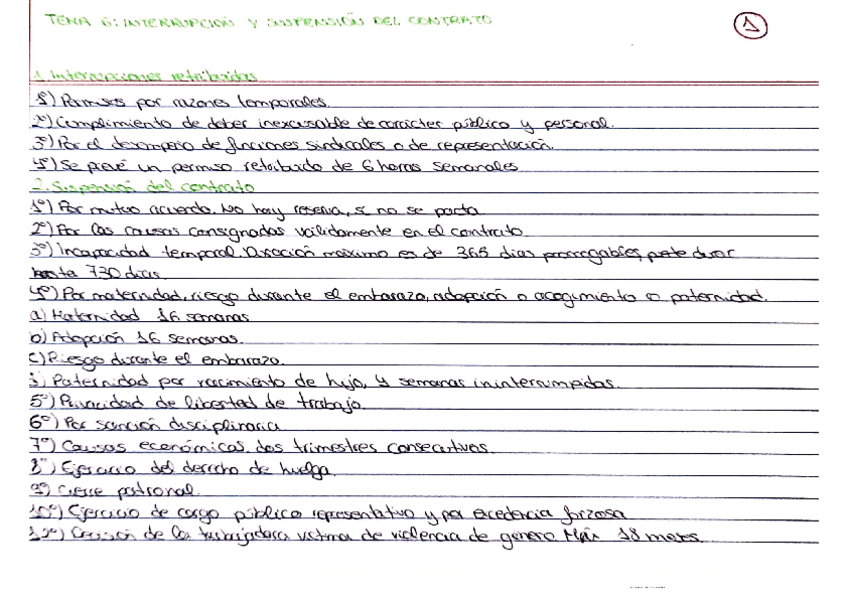 TEMA 6: INTERRUPCIÓN Y SUSPENSIÓN DEL CONTRATO
1
1. Interrupciones retribuidas
1º) Permisos por razones temporales.
2º) Cumplimiento de deber inexcusable de carácter público y personal.
3º) Por el desempeño de funciones sindicales o de representación.
4º) Se prevé un permiso retribuido de 6 horas semanales
2. Suspensión del contrato
1º) Por mutuo acuerdo. No hay reserva, si no se pacta
2º) Por las causas consignadas válidamente en el contrato.
3º) Incapacidad temporal. Duración máximo es de 365 días prorrogables, puede durar
hasta 730 días.
4º) Por maternidad, riesgo durante el embarazo, adopción o acogimiento o paternidad.
a) Maternidad 16 semanas
b) Adopción 16 semanas.
c) Riesgo durante el embarazo.
Paternidad por nacimiento de hijo, 4 semanas ininterrumpidas.
5º) Privacidad de libertad de trabajo.
6º) Por sanción disciplinaria
7º) Causas económicas, dos trimestres consecutivos.
8º) Ejercicio del derecho de huelga.
9º) Cierre patronal.
10º) Ejercicio de cargo público representativo y por excedencia forzosa
de la trabajadora víctima de violencia de género Máx 18 meses.